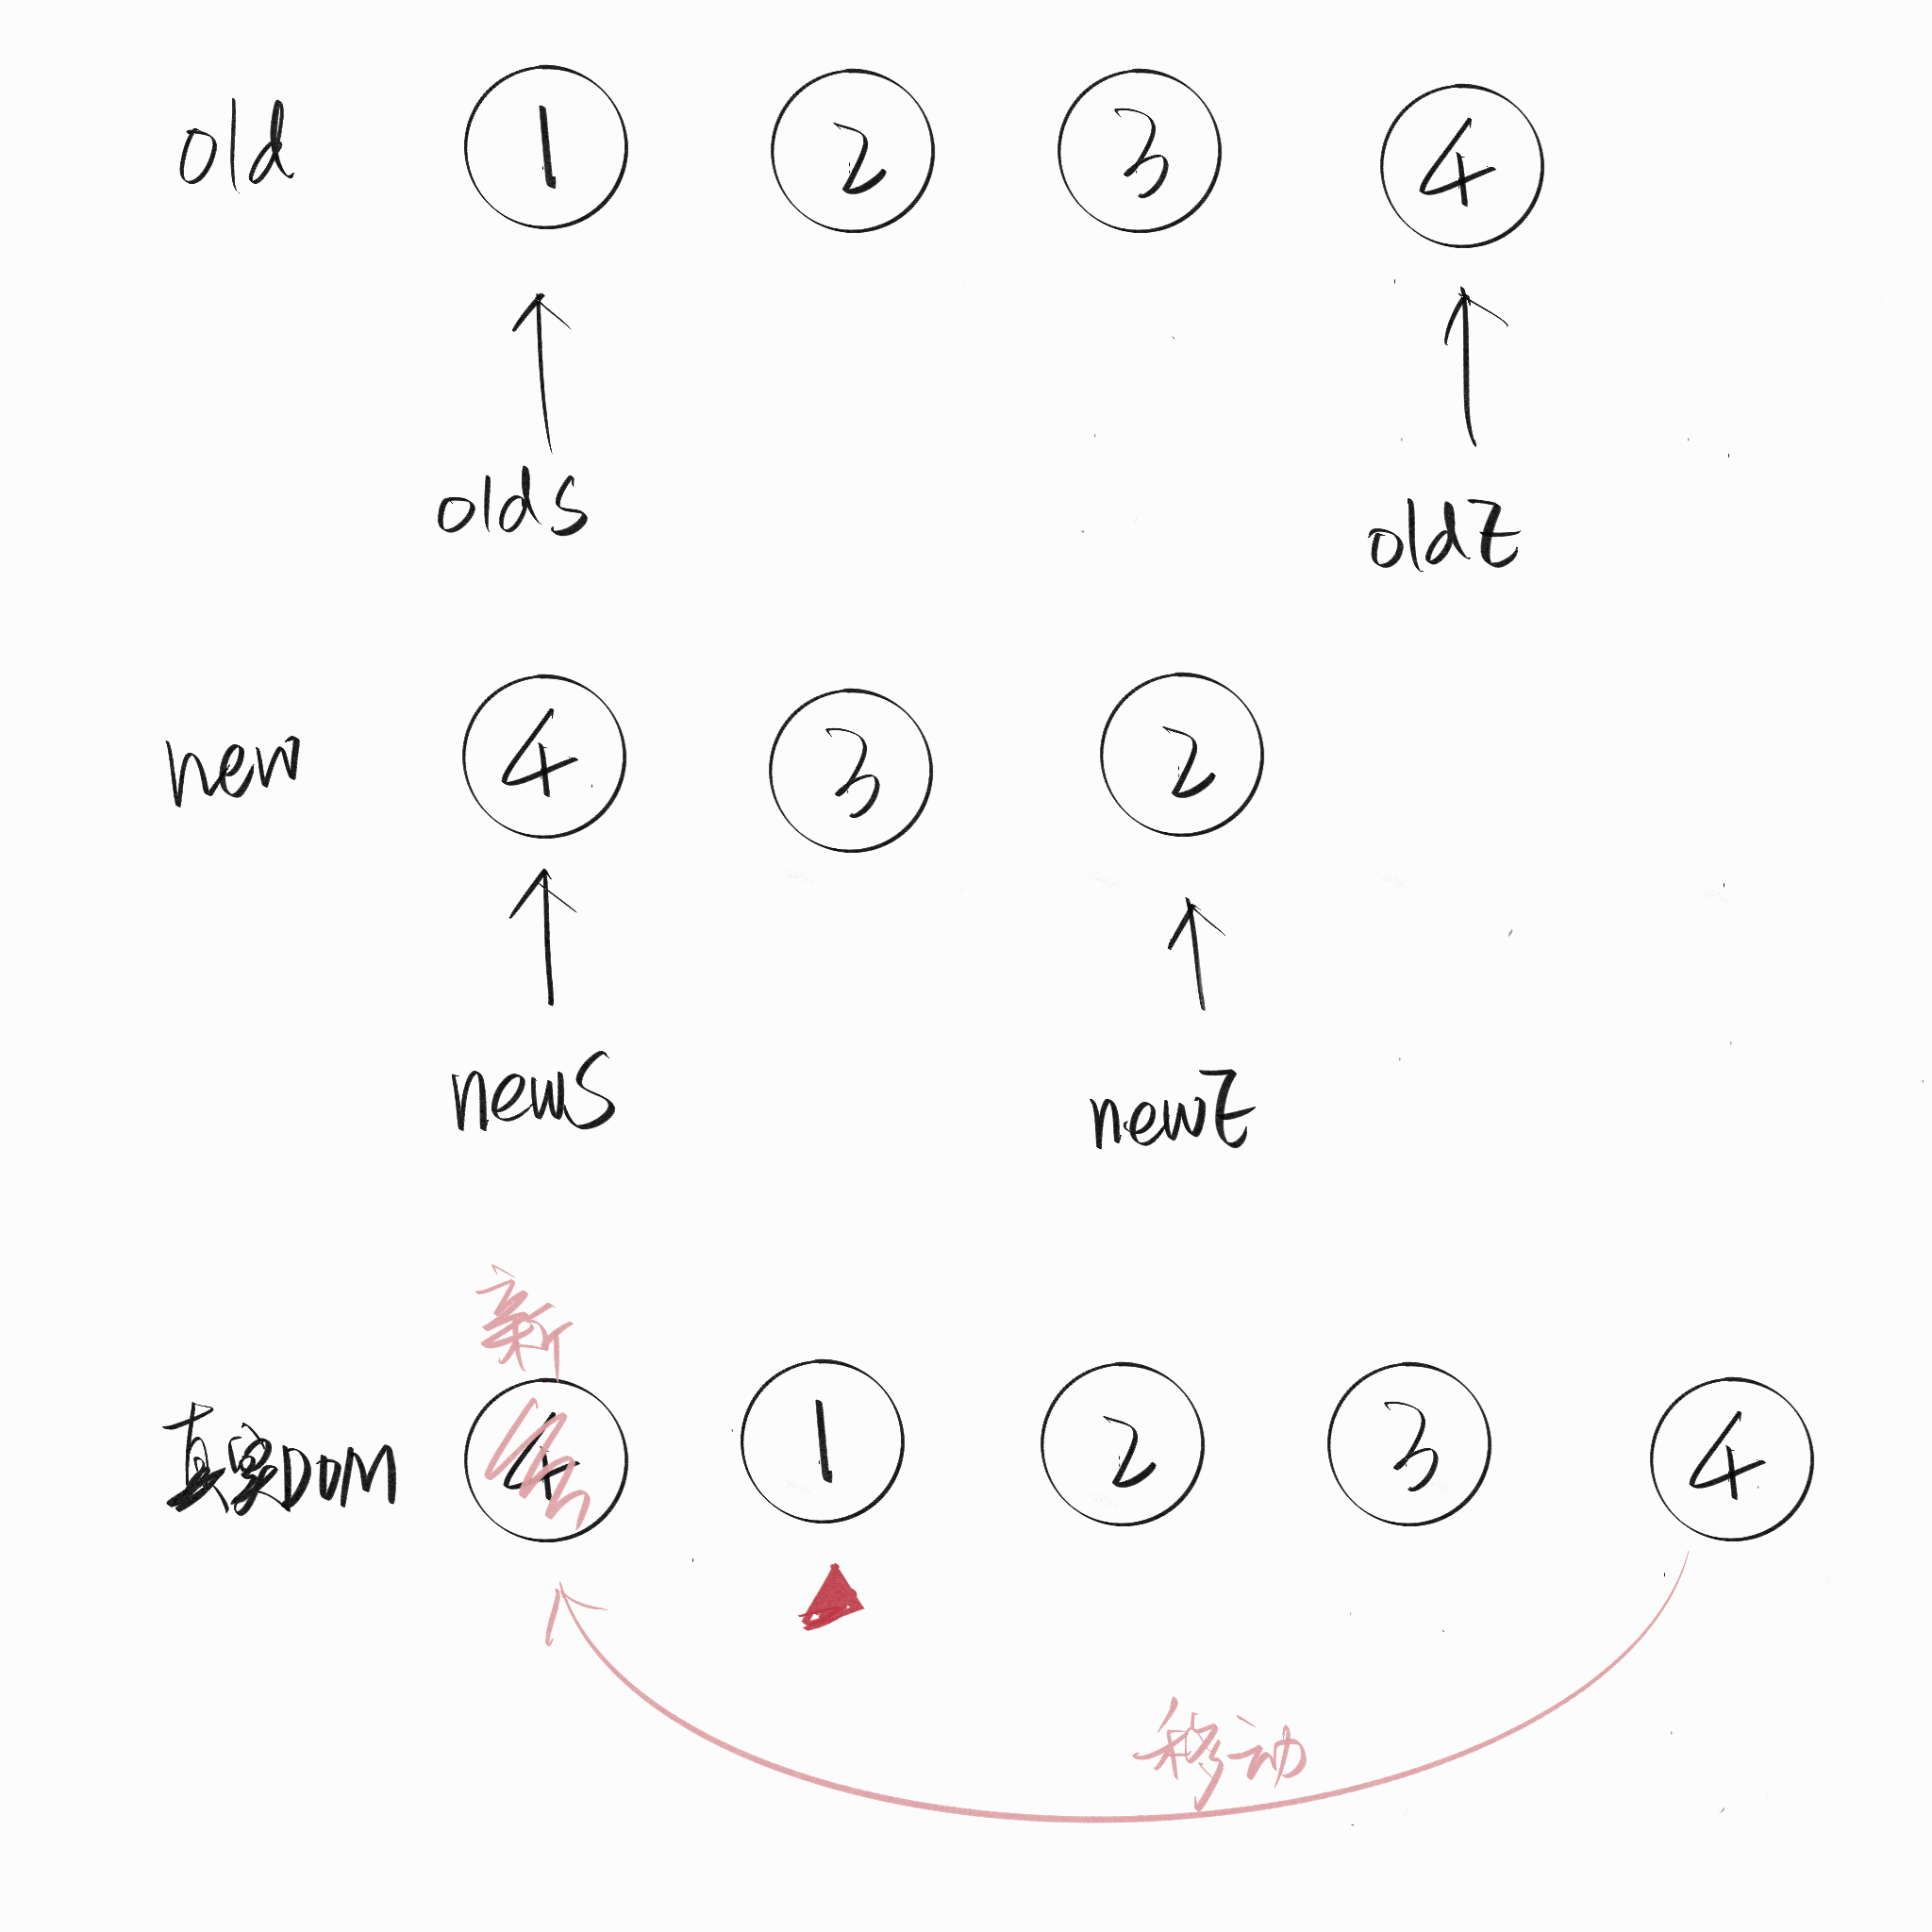 old 1 2 3 4
oldS oldE
new 4 3 2
newS newE
新
真实DOM 4 1 2 3 4
移动